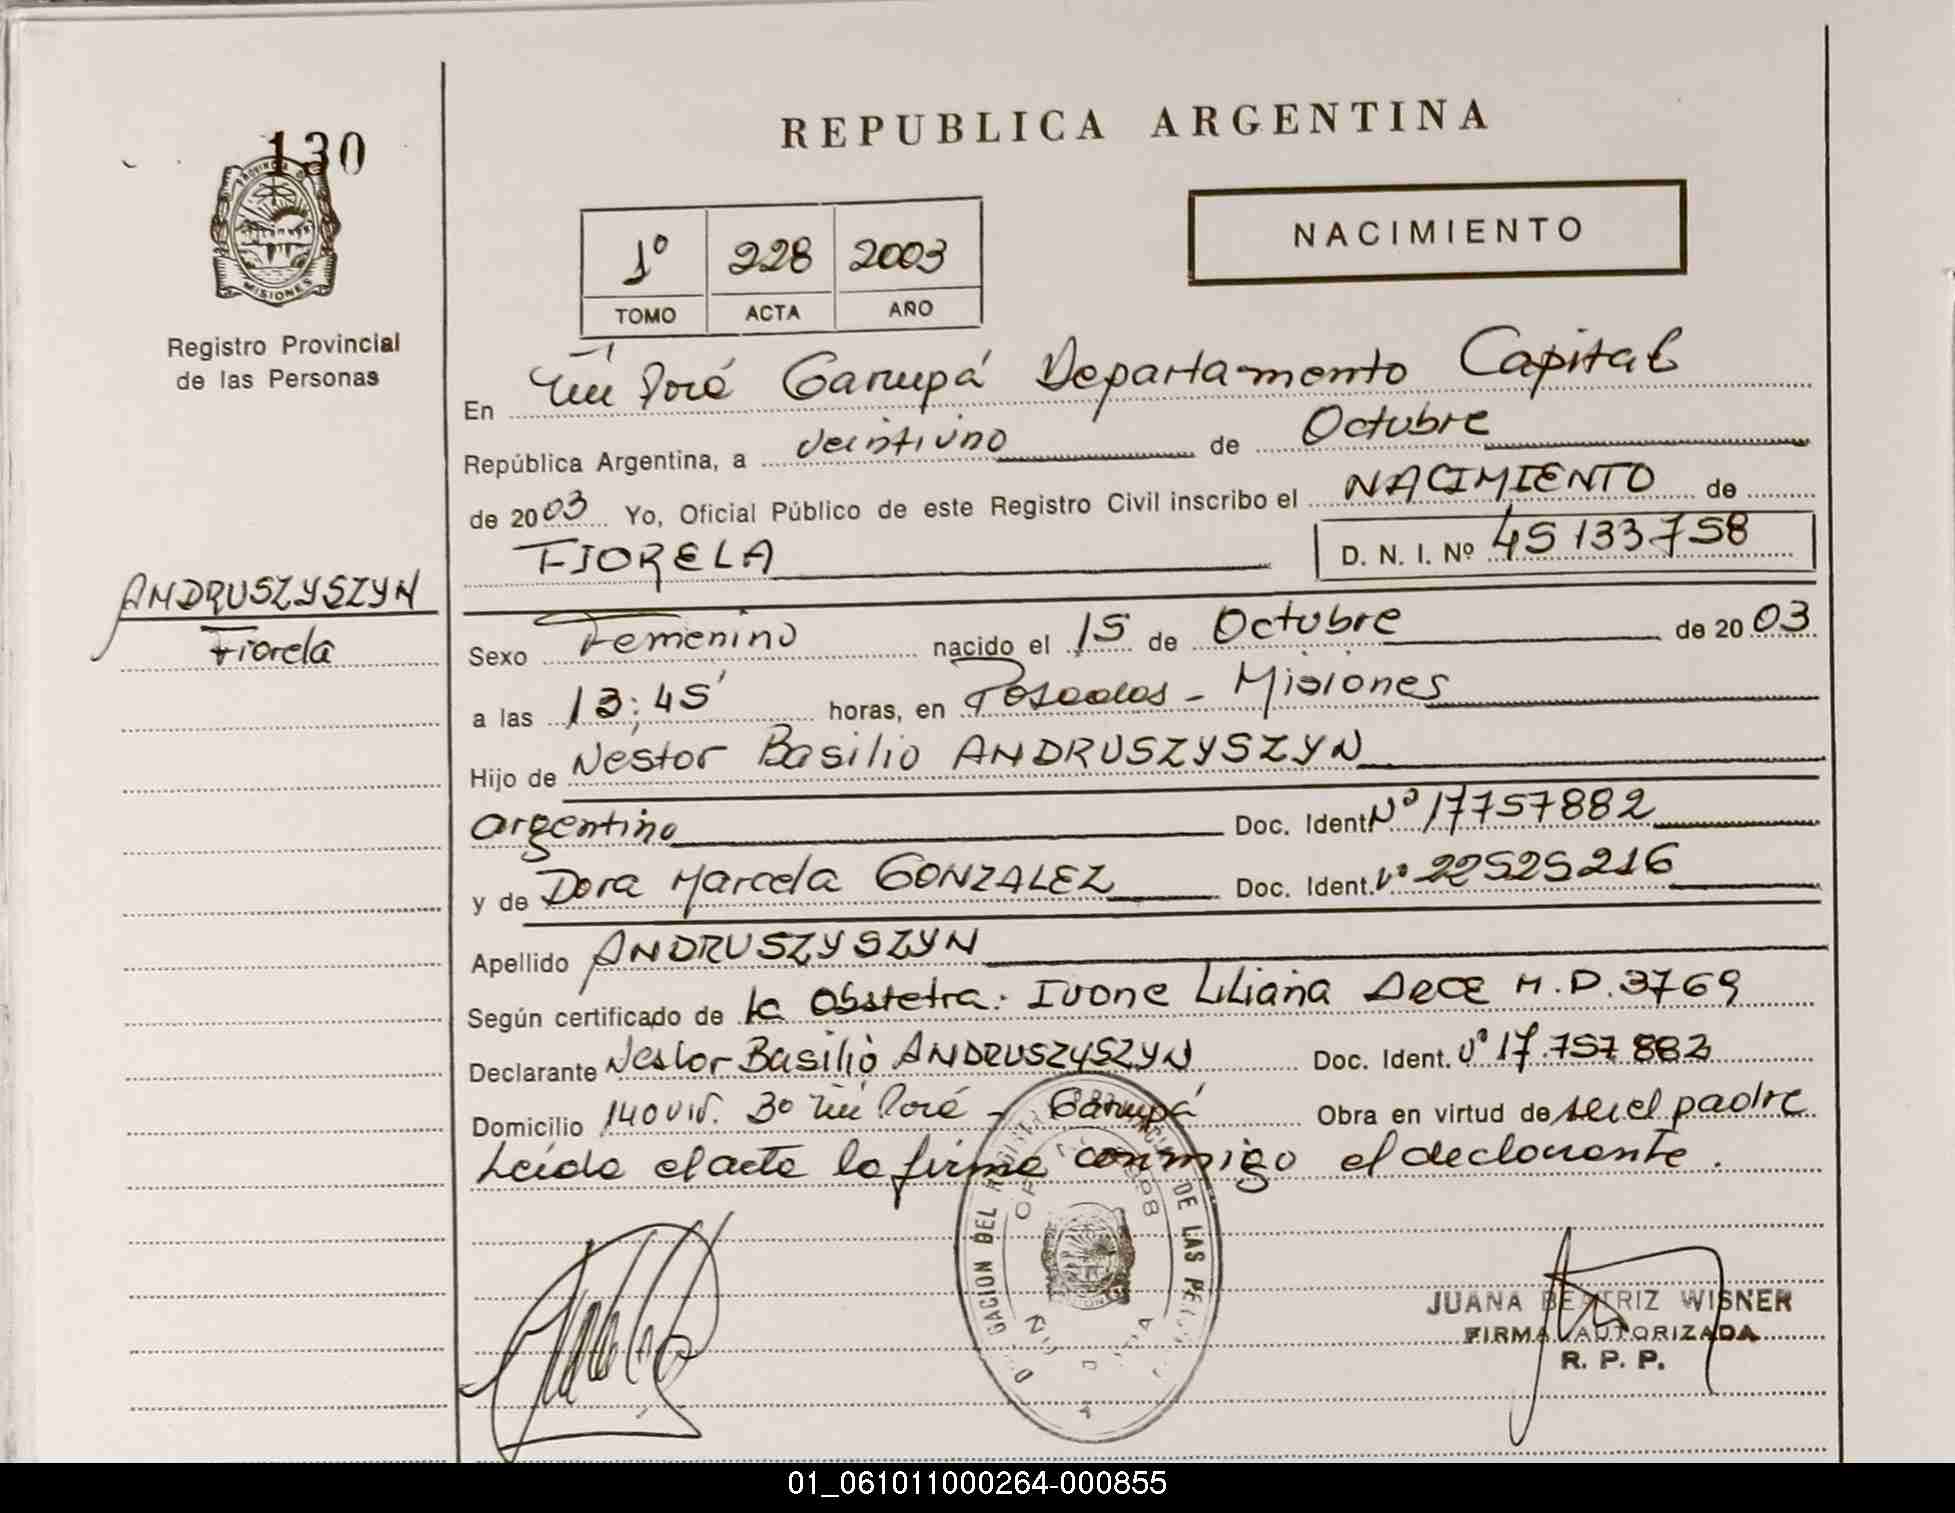 130
REPUBLICA ARGENTINA
NACIMIENTO
1º 228 2003
TOMO ACTA AÑO
PROVINCIA D
MISIONES
Registro Provincial
de las Personas
En Ñú Porá Garupá Departamento Capital
República Argentina, a veintiuno de Octubre
de 2003 Yo, Oficial Público de este Registro Civil inscribo el NACIMIENTO de
FIORELA D. N. I. Nº 45133758
ANDRUSZYSZYN
Fiorela
Sexo Femenino nacido el 15 de Octubre de 2003
a las 13:45' horas, en Posadas - Misiones
Hijo de Nestor Basilio ANDRUSZYSZYN
argentino Doc. Ident. Nº 17757882
y de Dora Marcela GONZALEZ Doc. Ident. Nº 22525216
Apellido ANDRUSZYSZYN
Según certificado de la Obstetra: Ivone Liliana Arce M.P. 3769
Declarante Nestor Basilio ANDRUSZYSZYN Doc. Ident. Nº 17.757 882
Domicilio 140 viv. Bº Ñú Porá - Garupá Obra en virtud de ser el padre
Leída el acta la firma conmigo el declarante.
DE LAS PE
JUANA BEATRIZ WISNER
FIRMA AUTORIZADA
R. P. P.
01_061011000264-000855